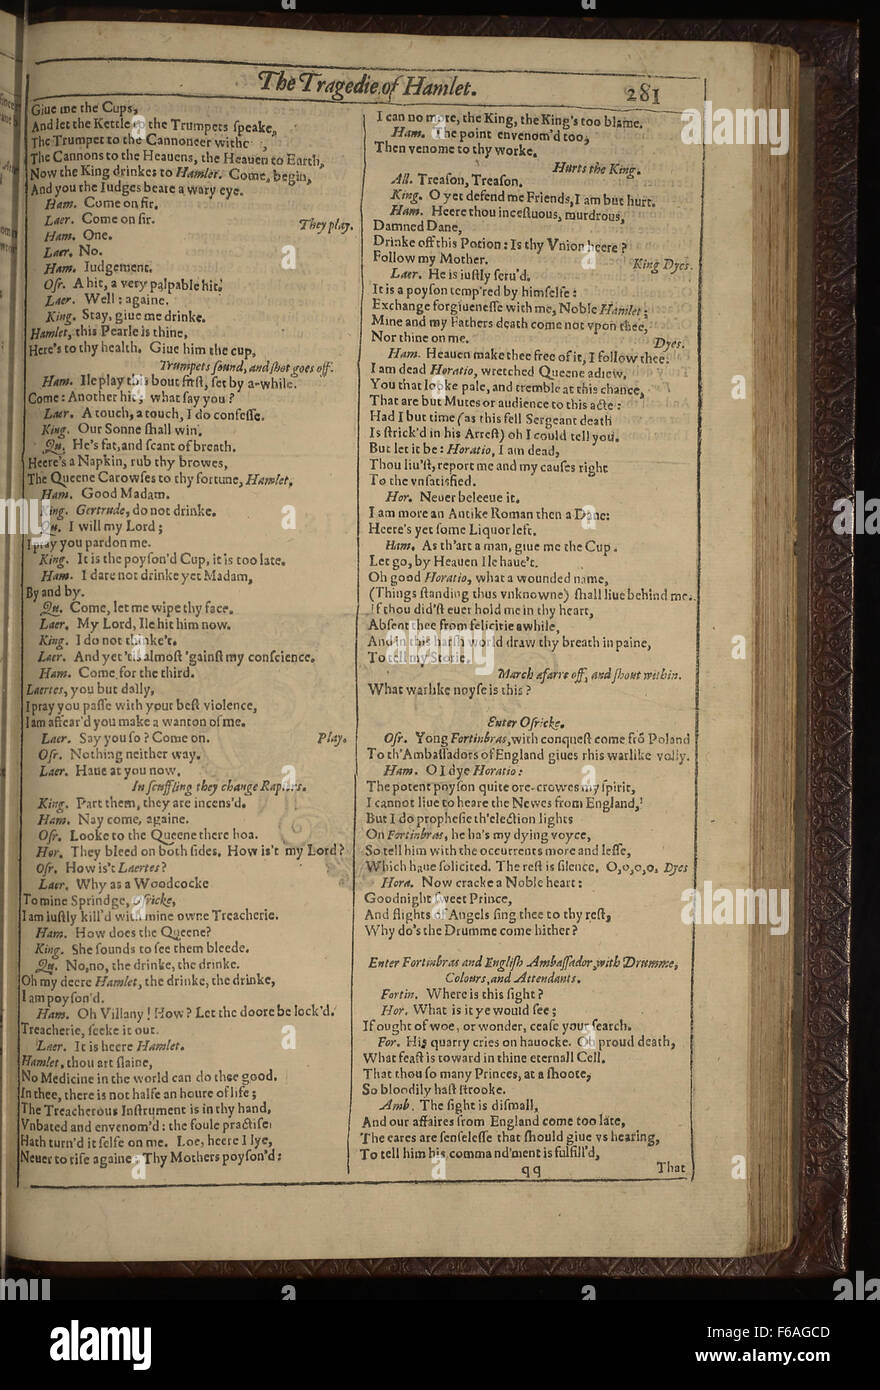 The Tragedie of Hamlet.
281
Giue me the Cups,
And let the Kettle to the Trumpets ſpeake,
The Trumpet to the Cannoneer
The Cannons to the Heauens, the Heauen to Earth,
Now the King drinkes to Hamlet. Come, begin,
And you the Iudges beare a wary eye.
Ham. Come on ſir.
Laer. Come on ſir.
They play.
Ham. One.
Laer. No.
Ham. Iudgement.
Oſr. A hit, a very palpable hit.
Laer. Well : againe.
King. Stay, giue me drinke.
Hamlet, this Pearle is thine,
Here's to thy health. Giue him the cup,
Trumpets ſound, and ſhot goes off.
Ham. Ile play this bout firſt, ſet by a-while.
Come : Another hit; what ſay you ?
Laer. A touch, a touch, I do confeſſe.
King. Our Sonne ſhall win.
Qu. He's fat, and ſcant of breath.
Heere's a Napkin, rub thy browes,
The Queene Carowſes to thy fortune, Hamlet.
Ham. Good Madam.
King. Gertrude, do not drinke.
Qu. I will my Lord ;
I pray you pardon me.
King. It is the poyſon'd Cup, it is too late.
Ham. I dare not drinke yet Madam,
By and by.
Qu. Come, let me wipe thy face.
Laer. My Lord, Ile hit him now.
King. I do not thinke't.
Laer. And yet 'tis almoſt 'gainſt my conſcience.
Ham. Come for the third.
Laertes, you but dally,
I pray you paſſe with your beſt violence,
I am affear'd you make a wanton of me.
Laer. Say you ſo ? Come on.
Play.
Oſr. Nothing neither way.
Laer. Haue at you now.
In ſcuffling they change Rapiers.
King. Part them, they are incens'd.
Ham. Nay come, againe.
Oſr. Looke to the Queene there hoa.
Hor. They bleed on both ſides. How is't my Lord ?
Oſr. How is't Laertes ?
Laer. Why as a Woodcocke
To mine Sprindge, Oſricke,
I am iuſtly kill'd with mine owne Treacherie.
Ham. How does the Queene?
King. She ſounds to ſee them bleede.
Qu. No, no, the drinke, the drinke.
Oh my deere Hamlet, the drinke, the drinke,
I am poyſon'd.
Ham. Oh Villany ! How ? Let the doore be lock'd.
Treacherie, ſeeke it out.
Laer. It is heere Hamlet.
Hamlet, thou art ſlaine,
No Medicine in the world can do thee good.
In thee, there is not halfe an houre of life ;
The Treacherous Inſtrument is in thy hand,
Vnbated and envenom'd : the foule practiſe
Hath turn'd it ſelfe on me. Loe, heere I lye,
Neuer to riſe againe : Thy Mothers poyſon'd :
I can no more, the King, the King's too blame.
Ham. The point envenom'd too,
Then venome to thy worke.
Hurts the King.
All. Treaſon, Treaſon.
King. O yet defend me Friends, I am but hurt.
Ham. Heere thou inceſtuous, murdrous,
Damned Dane,
Drinke off this Potion : Is thy Vnion heere ?
Follow my Mother.
King Dyes.
Laer. He is iuſtly ſeru'd.
It is a poyſon temp'red by himſelfe :
Exchange forgiueneſſe with me, Noble Hamlet ;
Mine and my Fathers death come not vpon thee,
Nor thine on me.
Dyes.
Ham. Heauen make thee free of it, I follow thee.
I am dead Horatio, wretched Queene adiew,
You that looke pale, and tremble at this chance,
That are but Mutes or audience to this acte :
Had I but time (as this fell Sergeant death
Is ſtrick'd in his Arreſt) oh I could tell you.
But let it be : Horatio, I am dead,
Thou liu'ſt, report me and my cauſes right
To the vnſatisfied.
Hor. Neuer beleeue it.
I am more an Antike Roman then a Dane:
Heere's yet ſome Liquor left.
Ham. As th'art a man, giue me the Cup.
Let go, by Heauen Ile haue't.
Oh good Horatio, what a wounded name,
(Things ſtanding thus vnknowne) ſhall liue behind me.
If thou did'ſt euer hold me in thy heart,
Abſent thee from felicitie awhile,
And in this harſh world draw thy breath in paine,
To tell my Storie.
March afarre off, and ſhout within.
What warlike noyſe is this ?
Enter Oſricke.
Oſr. Yong Fortinbras, with conqueſt come frō Poland
To th'Ambaſſadors of England giues rhis warlike volly.
Ham. O I dye Horatio :
The potent poyſon quite ore-crowes my ſpirit,
I cannot liue to heare the Newes from England,
But I do propheſie th'election lights
On Fortinbras, he ha's my dying voyce,
So tell him with the occurrents more and leſſe,
Which haue ſolicited. The reſt is ſilence. O,o,o,o. Dyes
Hora. Now cracke a Noble heart :
Goodnight ſweet Prince,
And flights of Angels ſing thee to thy reſt,
Why do's the Drumme come hither ?
Enter Fortinbras and Engliſh Ambaſſador, with Drumme,
Colours, and Attendants.
Fortin. Where is this ſight ?
Hor. What is it ye would ſee ;
If ought of woe, or wonder, ceaſe your ſearch.
For. His quarry cries on hauocke. Oh proud death,
What feaſt is toward in thine eternall Cell.
That thou ſo many Princes, at a ſhoote,
So bloodily haſt ſtrooke.
Amb. The ſight is diſmall,
And our affaires from England come too late,
The eares are ſenſeleſſe that ſhould giue vs hearing,
To tell him his command'ment is fulfill'd,
qq
That
a
alamy
a
alamy stock photo
F6AGCD
www.alamy.com